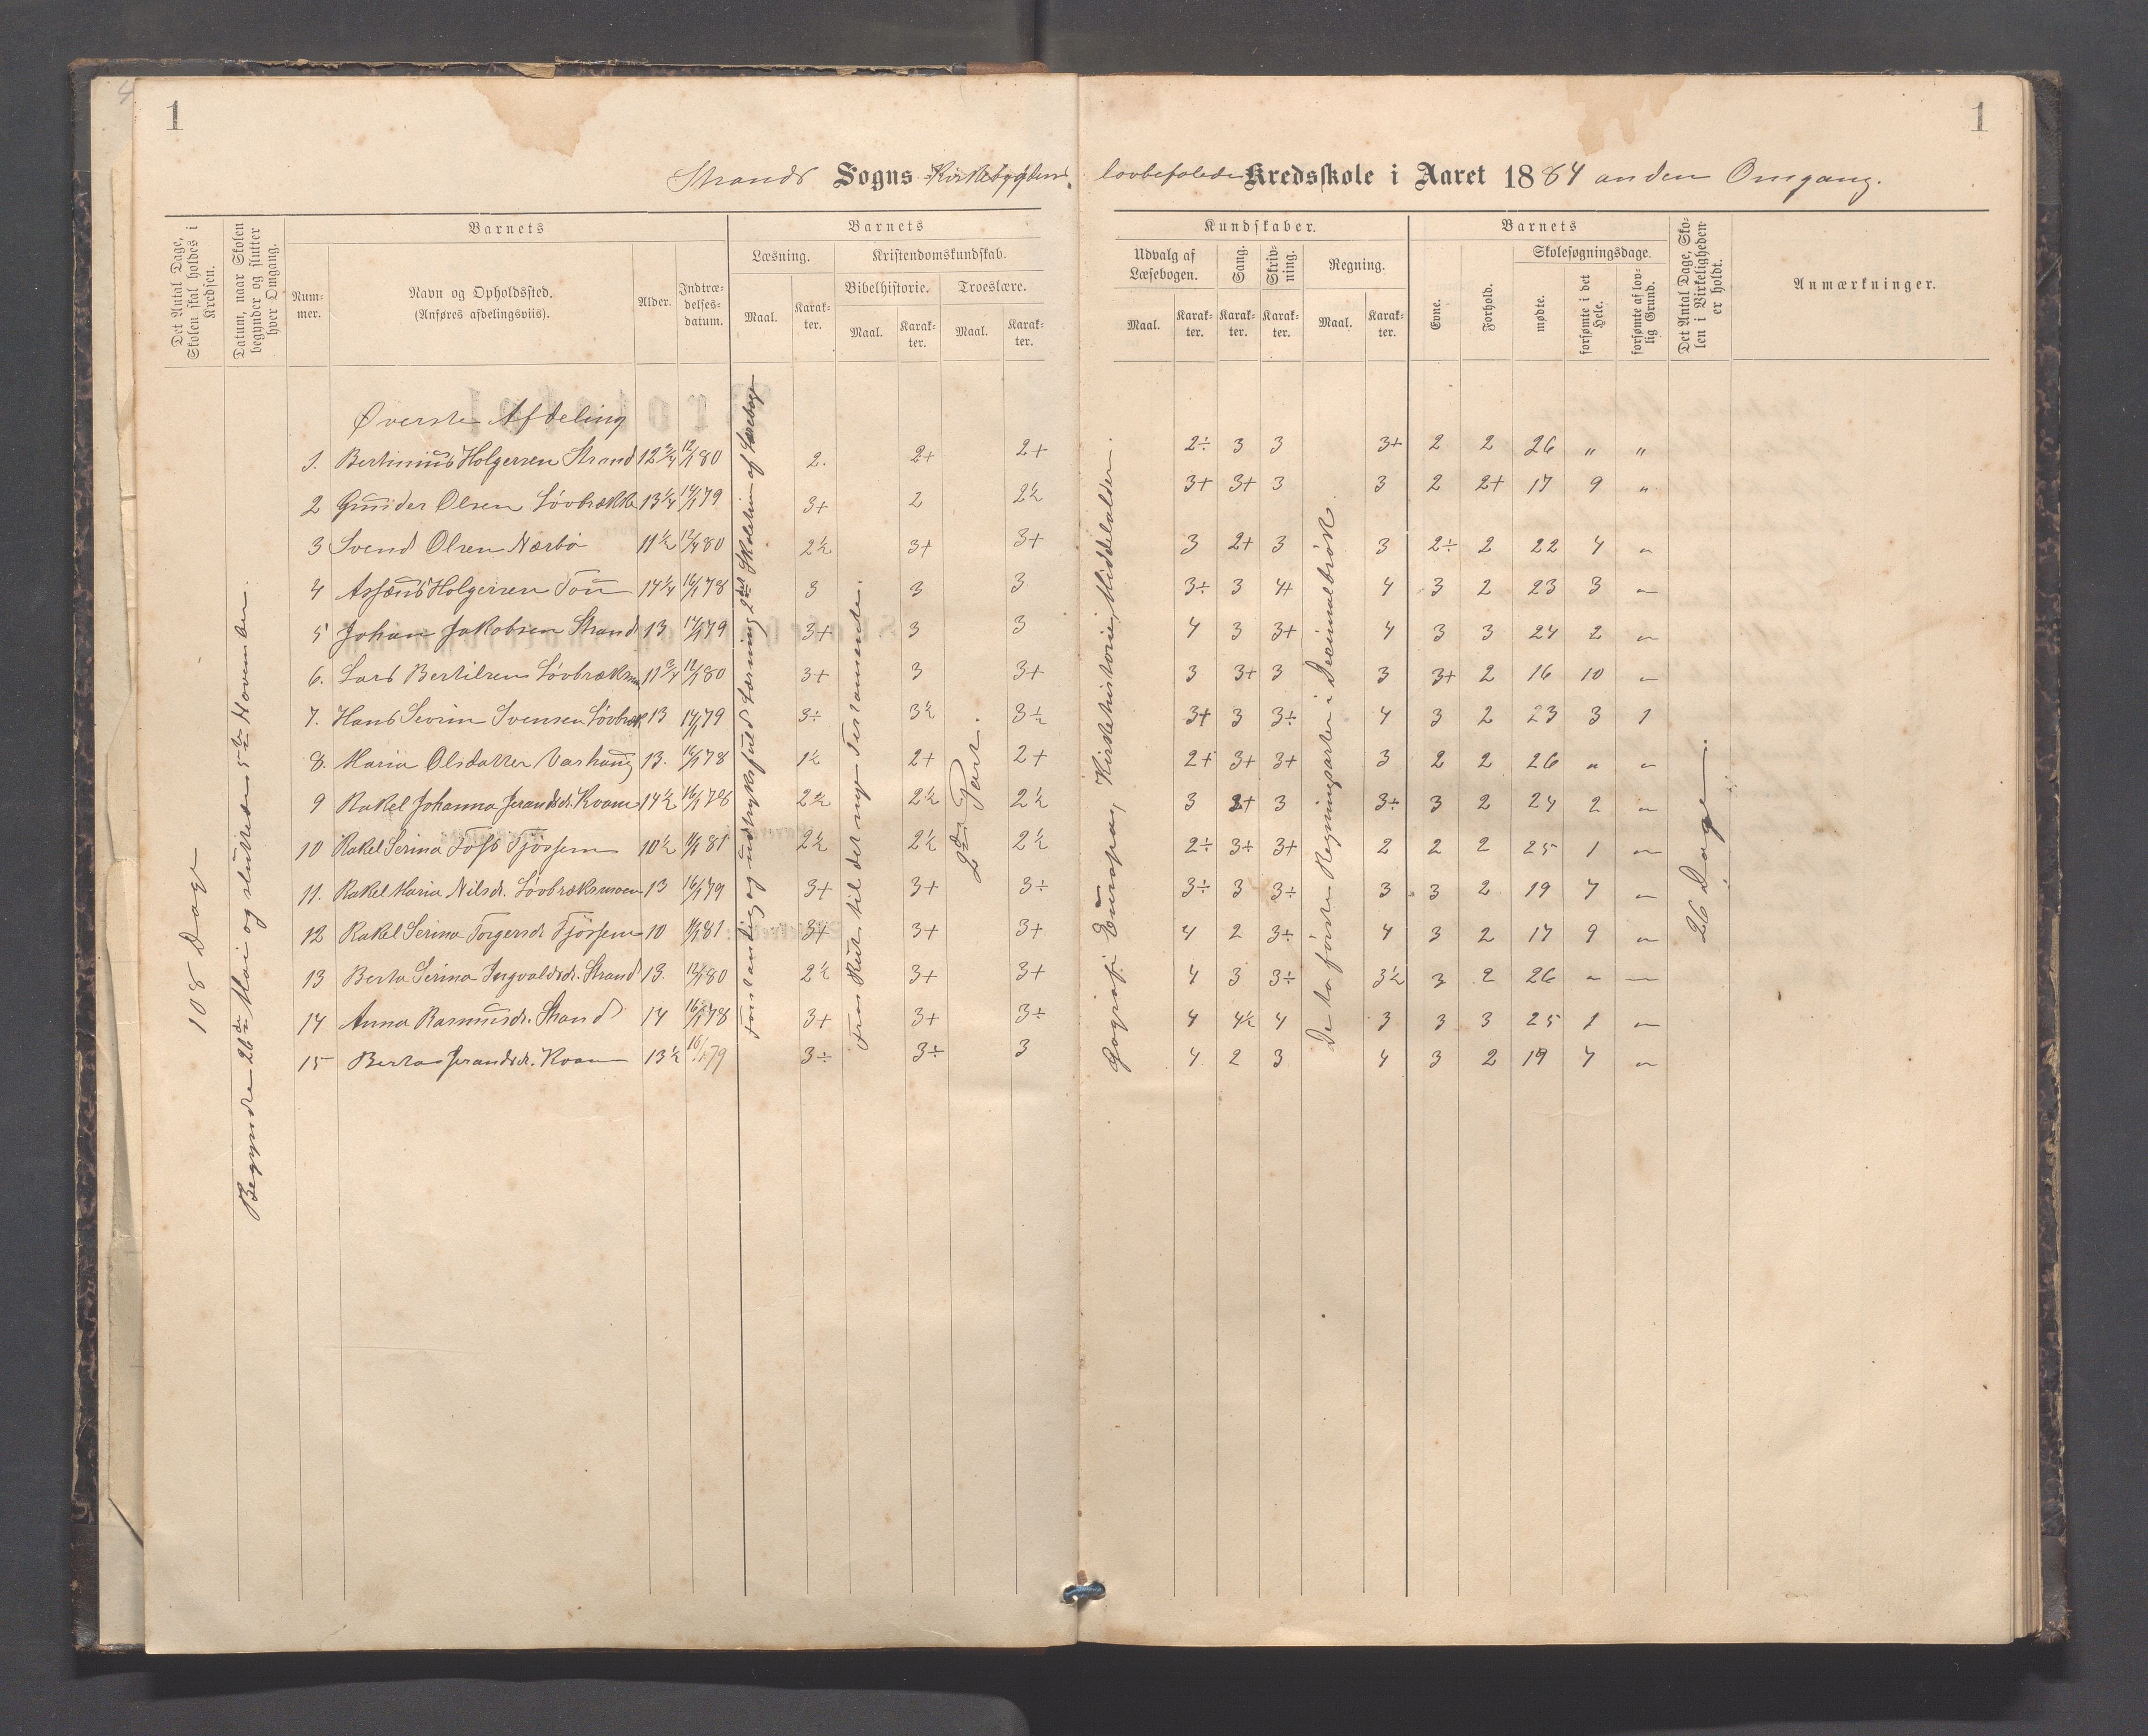 4
1
1
Strands Sogns Kirkebygdens lovbefalede Kredsskole i Aaret 1884 anden Omgang.
Det Antal Dage, Skolen skal holdes i Kredsen.
Datum, naar Skolen begynder og slutter hver Omgang.
Barnets
Num-mer.
Navn og Opholdssted.
(Anføres afdelingsviis).
Alder.
Indtræ-delses-datum.
Barnets
Læsning.
Maal.
Karak-ter.
Kristendomskundskab.
Bibelhistorie.
Maal.
Karak-ter.
Troeslære.
Maal.
Karak-ter.
Kundskaber.
Udvalg af Læsebogen.
Maal.
Karak-ter.
Sang.
Karak-ter.
Skriv-ning.
Karak-ter.
Regning.
Maal.
Karak-ter.
Barnets
Evne.
Forhold.
Skolesøgningsdage.
mødte.
forsømte i det Hele.
forsømte af lov-lig Grund.
Det Antal Dage, Sko-len i Virkeligheden er holdt.
Anmærkninger.
108 Dage
Begyndte 26de Mai og sluttede 5te November.
Forstandig og udtryksfuld Læsning 2det Skoletrin af Læsebogen
Fra Rut til det nye Testamente.
2den Part.
Geografi: Europa, Kirkehistorie, Middelalder.
De to første Regningsarter i Decimalbrøk
26 Dage
Øverste Afdeling
1. Bertinius Holgersen Strand 12 3/4 12/1 80 2. 2+ 2+ 2÷ 3 3 3+ 2 2 26 " "
2 Gunder Olsen Løvbrække 13 1/4 14/1 79 3+ 2 2½ 3+ 3+ 3 3 2 2+ 17 9 "
3 Svend Olsen Nærbø 11½ 12/4 80 2½ 3+ 3+ 3 2+ 3 3 2÷ 2 22 4 "
4 Holgersen Tou 14¼ 16/1 78 3 3 3 3÷ 3 4+ 4 3 2 23 3 "
5 Johan Jakobsen Strand 13 14/1 79 3+ 3 3 4 3 3+ 4 3 3 24 2 "
6. Lars Bertilsen 11 3/4 12/1 80 3+ 3 3+ 3 3+ 3 3 3+ 2 16 10 "
7. Hans Sevrin Svensen Løvbræk 13 14/1 79 3÷ 3½ 3½ 3+ 3 3÷ 4 3 2 23 3 1
8. Maria Olsdatter Vashaug 13. 16/1 78 1½ 2+ 2+ 2+ 3+ 3+ 3 2 2 26 " "
9 Rakel Johanna Jerandsdr. Kvam 14½ 16/1 78 2½ 2½ 2½ 3 2+ 3 3÷ 3 2 24 2 "
10 Rakel Serina Tøssem 10½ 11/1 81 2½ 2½ 2½ 2÷ 3÷ 3+ 2 2 2 25 1 "
11. Rakel Maria Nilsdr. Løvbræksmoen 13 16/1 79 3+ 3+ 3÷ 3÷ 3 3÷ 3 3 2 19 7 "
12 Rakel Serina Torgersdr. Tjøssem 10 11/1 81 3+ 3+ 3+ 4 2 3÷ 4 3 2 17 9 "
13 Berta Serina Ingvaldsdr. Strand 13. 12/1 80 2½ 3+ 3+ 4 3 3÷ 3½ 3 2 26 " "
14 Anna Rasmusdr. Strand 14 16/1 78 3+ 3+ 3÷ 4 4½ 4 3 3 3 25 1 "
15 Berta Jerandsdr. Kvam 13½ 16/1 79 3÷ 3÷ 3 4 2 3 4 3 2 19 7 "